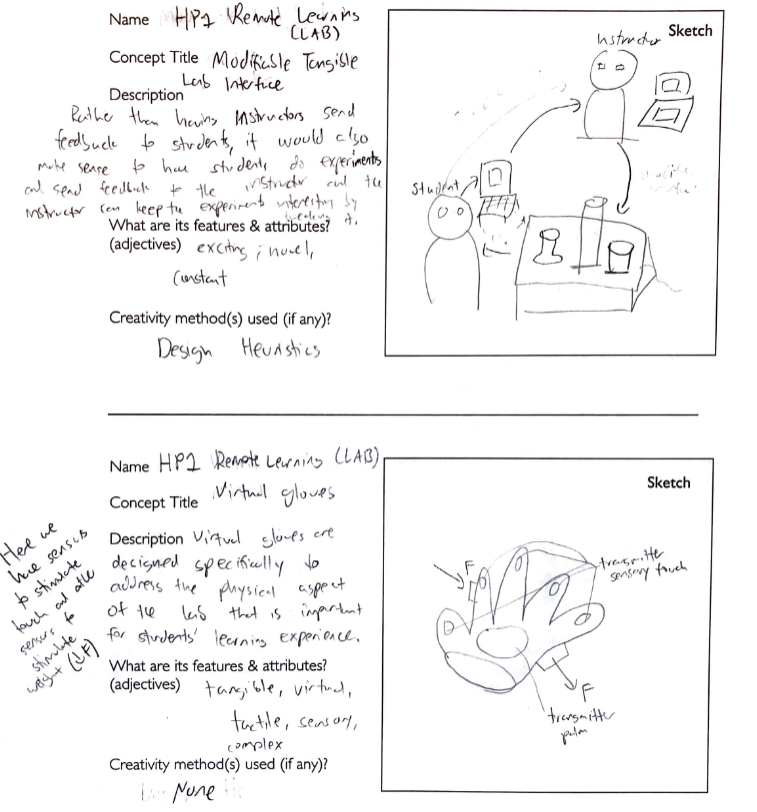 Name HP1 Remote Learning
(LAB)
Concept Title Modifiable Tangible
Lab Interface
Description
Rather than having instructors send
feedback to students, it would also
make sense to have students do experiments
and send feedback to the instructor and the
instructor can keep the experiment interesting by
tweaking it.
What are its features & attributes?
(adjectives) exciting, novel,
constant
Creativity method(s) used (if any)?
Design Heuristics
Sketch
Instructor
Student
Name HP1 Remote Learning (LAB)
Concept Title Virtual gloves
Description Virtual gloves are
designed specifically to
address the physical aspect
of the lab that is important
for students' learning experience.
Here we
have sensors
to stimulate
touch and other
sensors to
stimulate
weight (↓F)
What are its features & attributes?
(adjectives) tangible, virtual,
tactile, sensory,
complex
Creativity method(s) used (if any)?
None
Sketch
F
transmitter
sensory touch
F
transmitter
palm